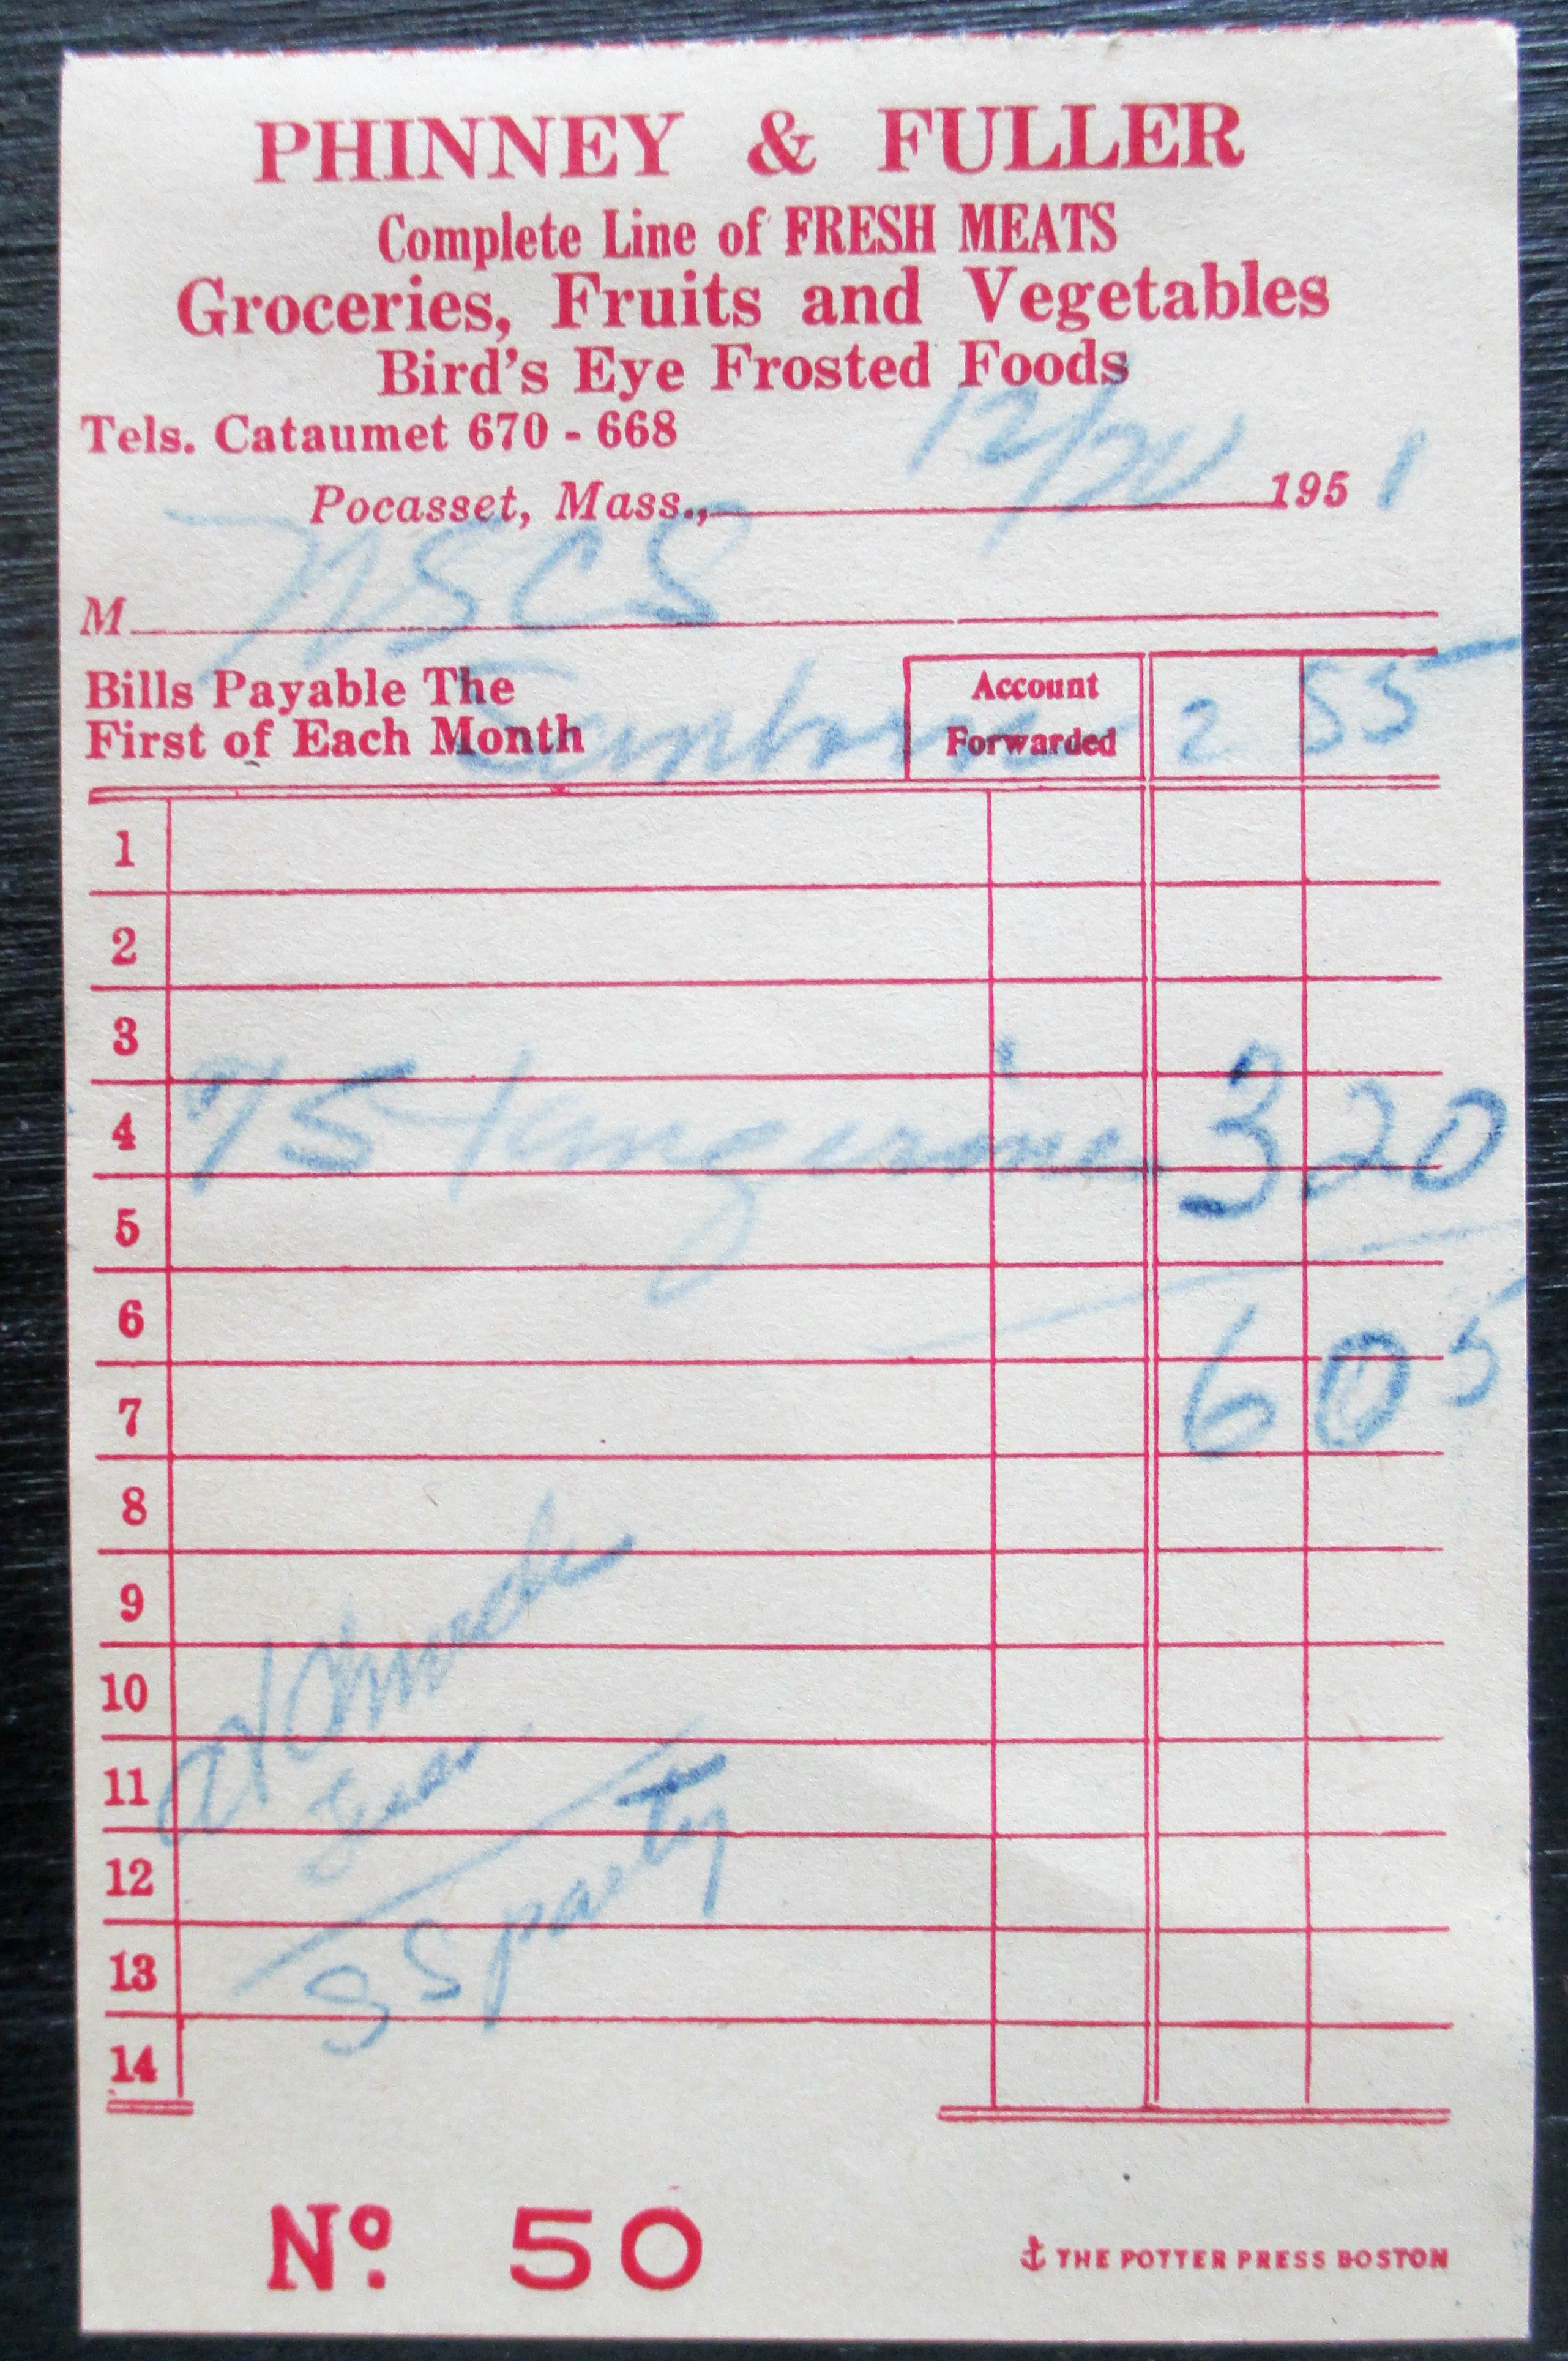 PHINNEY & FULLER
Complete Line of FRESH MEATS
Groceries, Fruits and Vegetables
Bird's Eye Frosted Foods
Tels. Cataumet 670 - 668
Pocasset, Mass., 12/20 195 1
M WSCS
Bills Payable The
First of Each Month
Account
Forwarded
2 55
1
2
3
4 75 tangerines 3 20
5
6
7 6 05
8
9
10
11
12
13
at
SS party
14
No. 50
THE POTTER PRESS BOSTON